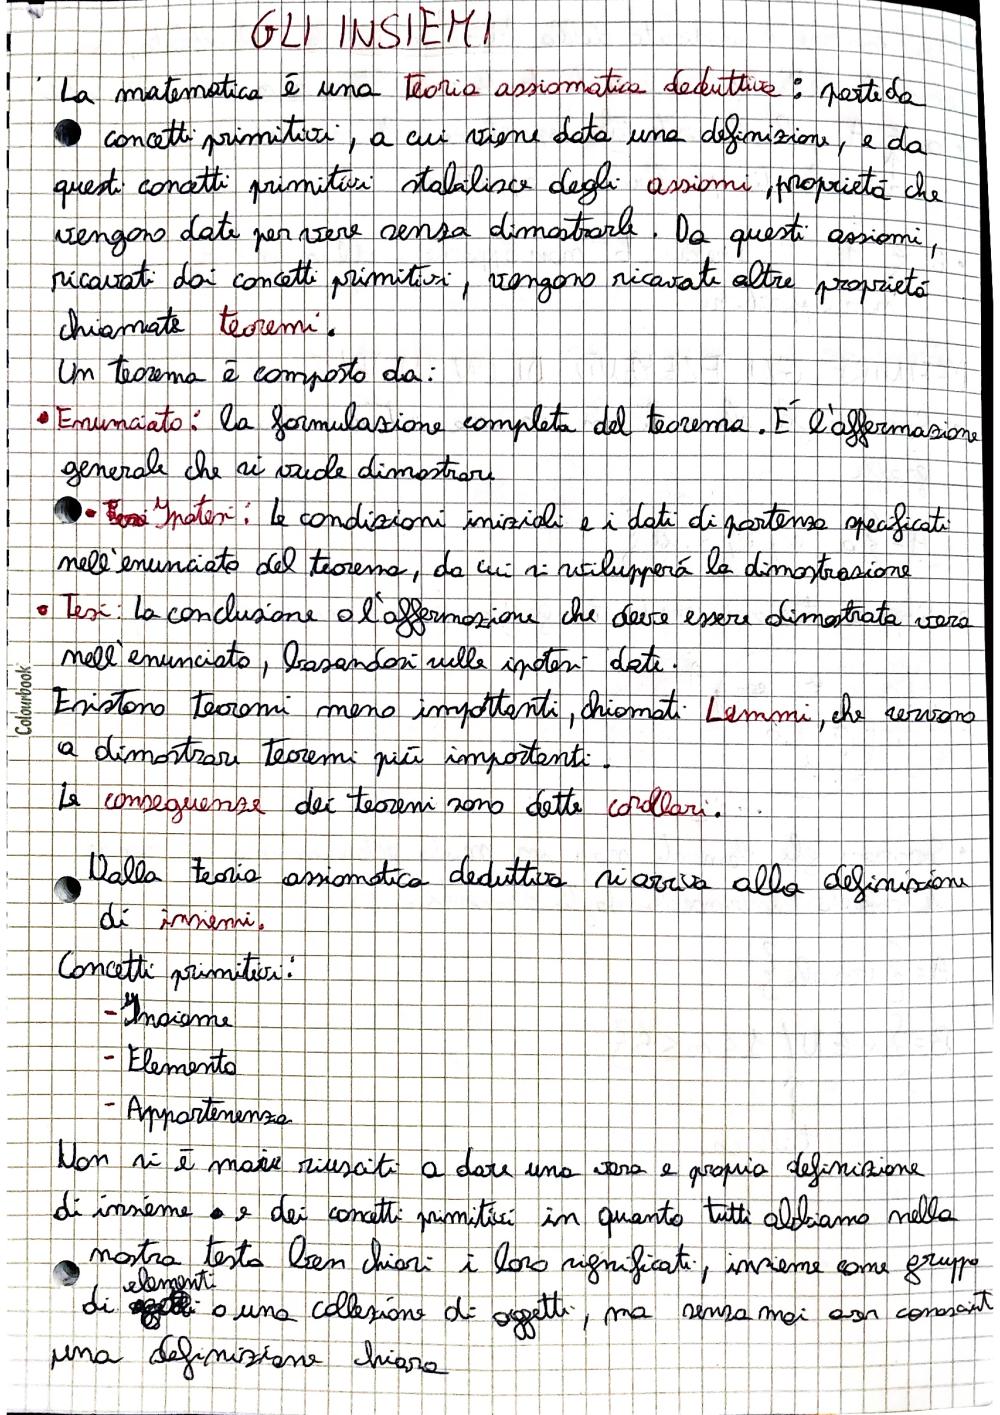 GLI INSIEMI
La matematica è una teoria assiomatica deduttiva: parte da
concetti primitivi, a cui viene data una definizione, e da
questi concetti primitivi stabilisce degli assiomi, proprietà che
vengono date per vere senza dimostrarle. Da questi assiomi,
ricavati dai concetti primitivi, vengono ricavate altre proprietà
chiamate teoremi.
Un teorema è composto da:
• Enunciato: la formulazione completa del teorema. É l'affermazione
generale che si vuole dimostrare
• Ipotesi: le condizioni iniziali e i dati di partenza specificati
nell'enunciato del teorema, da cui si svilupperà la dimostrazione
• Tesi: La conclusione o l'affermazione che deve essere dimostrata vera
nell'enunciato, basandosi sulle ipotesi date.
Colourbook
Esistono teoremi meno importanti, chiamati Lemmi, che servono
a dimostrare teoremi più importanti.
Le conseguenze dei teoremi sono dette corollari.
Dalla teoria assiomatica deduttiva si arriva alla definizione
di insiemi.
Concetti primitivi:
- Insieme
- Elemento
- Appartenenza
Non si è mai riusciti a dare una vera e propria definizione
di insieme e dei concetti primitivi in quanto tutti abbiamo nella
nostra testa ben chiari i loro significati, insieme come gruppo
di elementi o una collezione di oggetti, ma senza mai aver
una definizione chiara